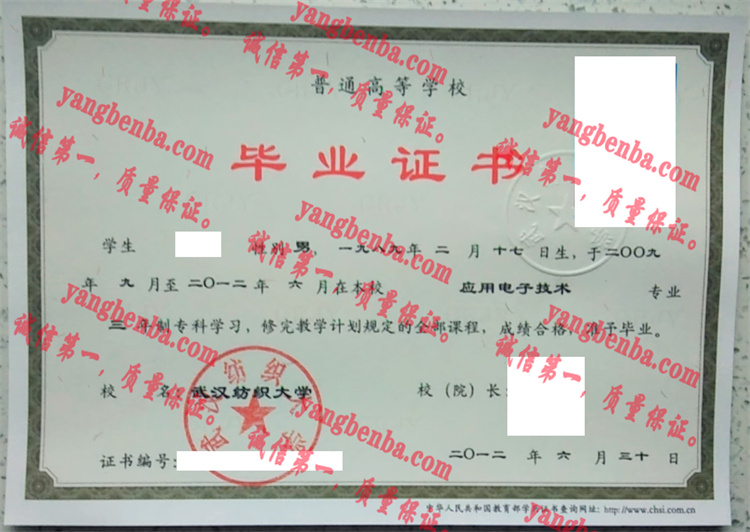 普通高等学校
毕业证书
学生 性别 男，一九八九年 二 月 十七 日生，于二〇〇九
年 九 月至 二〇一二 年 六 月在本校 应用电子技术 专业
三 年制专科学习，修完教学计划规定的全部课程，成绩合格，准予毕业。
校 名：武汉纺织大学 校（院）长：
武汉纺织大学
证书编号： 二〇一二 年 六 月 三十 日
中华人民共和国教育部学历证书查询网址：http://www.chsi.com.cn
yangbenba.com
诚信第一，质量保证。
yangbenba.com
诚信第一，质量保证。
yangbenba.com
诚信第一，质量保证。
yangbenba.com
诚信第一，质量保证。
yangbenba.com
诚信第一，质量保证。
yangbenba.com
诚信第一，质量保证。
yangbenba.com
诚信第一，质量保证。
yangbenba.com
诚信第一，质量保证。